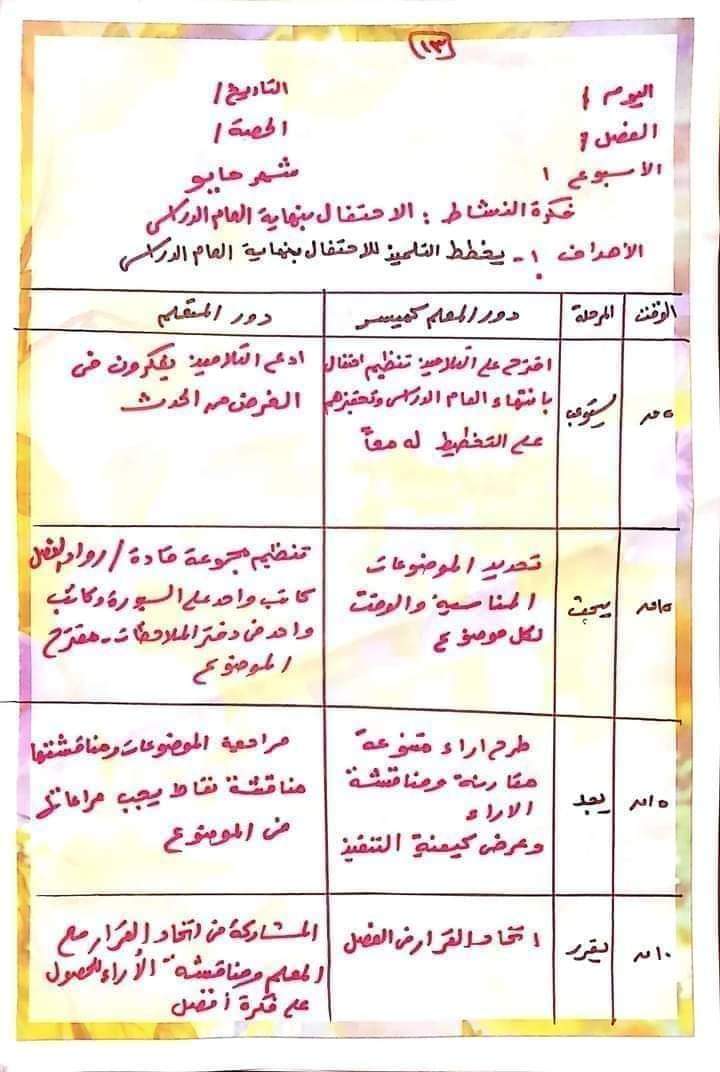 ١٣
اليوم / التاريخ /
الفصل / الحصة /
الأسبوع ١ شهر مايو
فكرة النشاط : الاحتفال بنهاية العام الدراسى
الأهداف : ١- يخطط التلميذ للاحتفال بنهاية العام الدراسى
الوقت المرحلة دور المعلم كميسر دور المتعلم
٥ د
يستوعب
اقترح على التلاميذ تنظيم احتفال
بانتهاء العام الدراسى وتحفيزهم
على التخطيط له معاً
ادع التلاميذ يفكرون فى
الغرض من الحدث
١٥ د
يبحث
تحديد الموضوعات
المناسبة والوقت
لكل موضوع
تنظيم مجموعة قادة / رواد الفصل
كاتب واحد على السبورة وكاتب
واحد فى دفتر الملاحظات - مقترح
الموضوع
١٥ د
يعد
طرح اراء متنوعة
مقارنة ومناقشة
الاراء
وعرض كيفية التنفيذ
مراجعة الموضوعات ومناقشتها
مناقشة نقاط يجب مراعاتها
فى الموضوع
١٠ د
يقرر
اتخاذ القرار فى الفصل
المشاركة فى اتخاذ القرار مع
المعلم ومناقشة الأراء للحصول
على فكرة أفضل